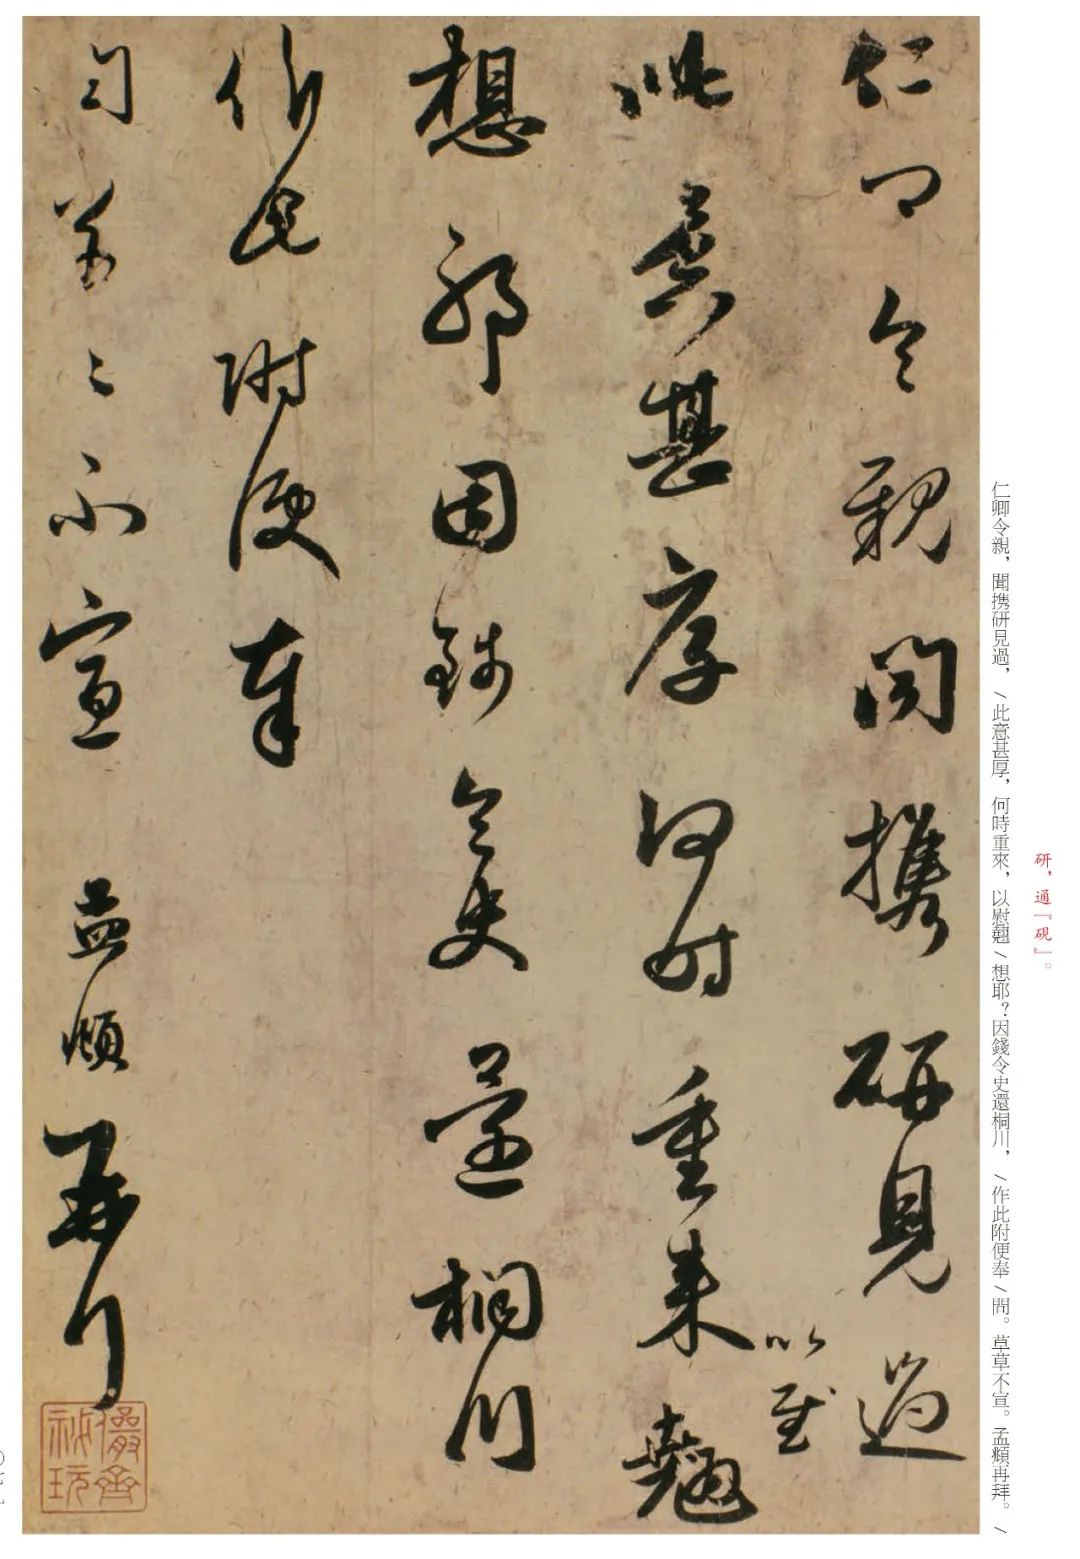 仁卿令親聞携研見過
此意甚厚何時重來以慰翹
想耶因錢令史還桐川
作此附便奉
問草草不宣孟頫再拜
仁卿令親，聞携研見過，/此意甚厚，何時重來，以慰翹/想耶？因錢令史還桐川，/作此附便奉/問。草草不宣。孟頫再拜。/
研，通『硯』。